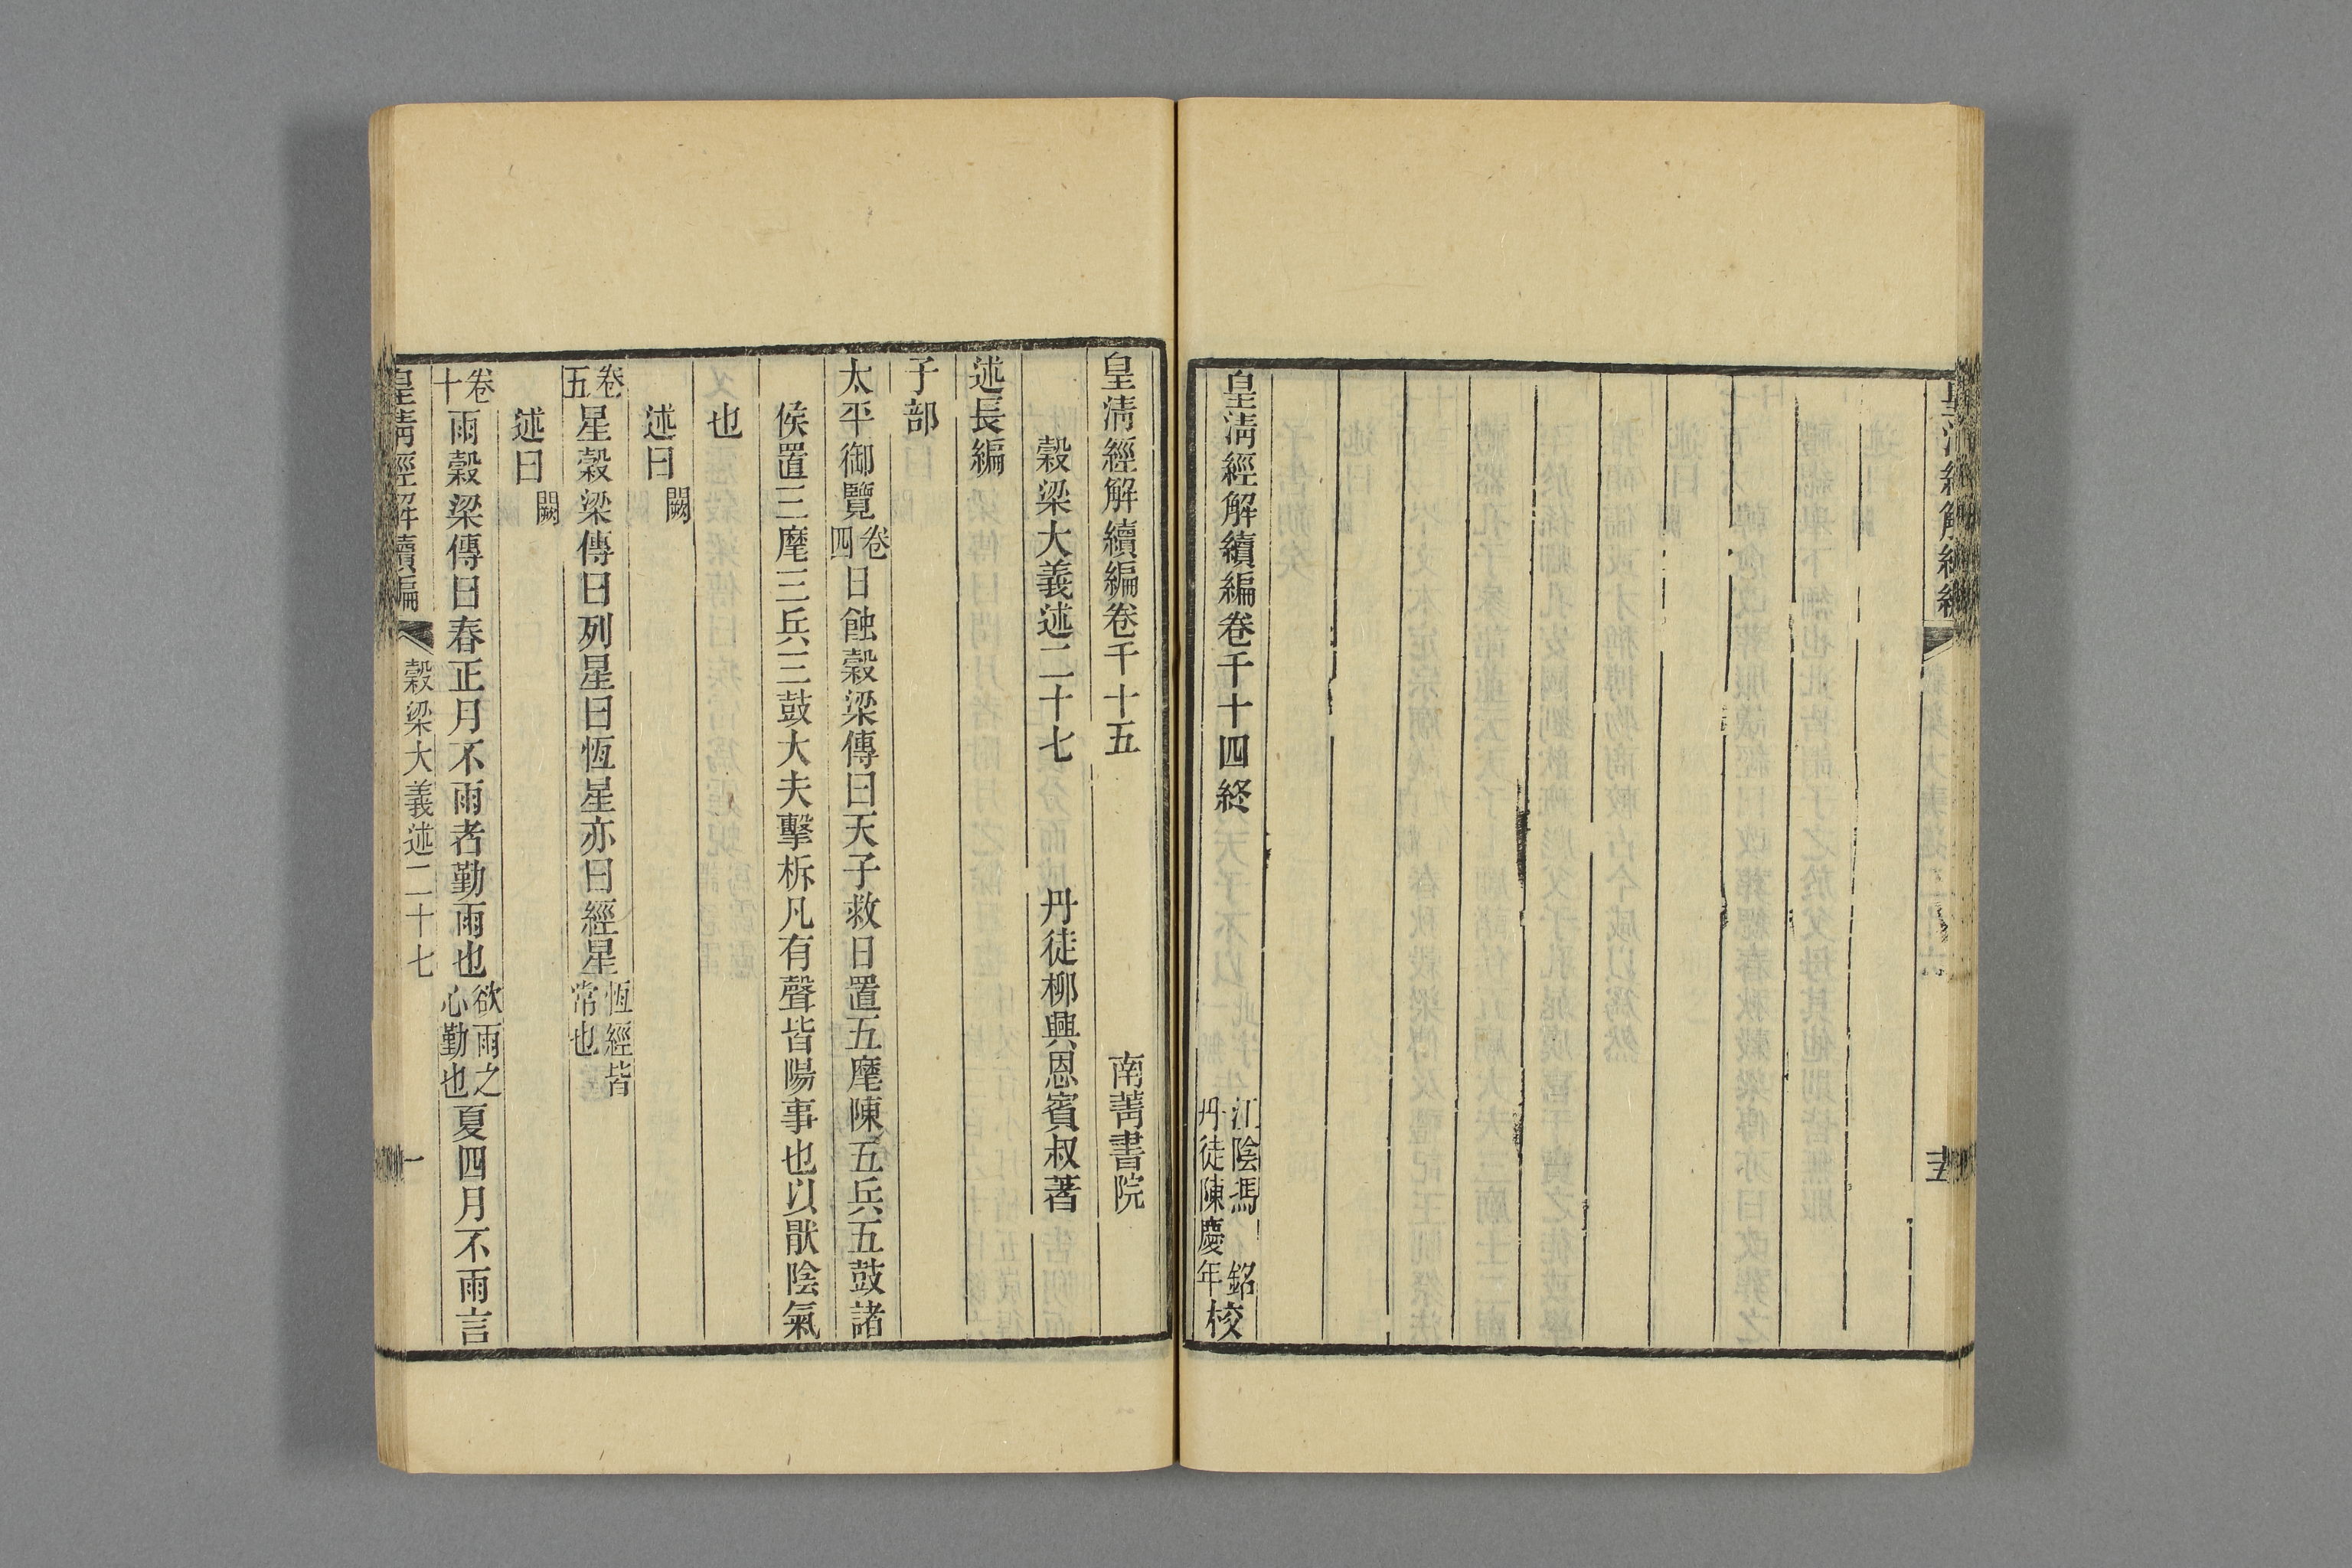 皇清經解續編卷千十四終
江陰馮 銘
丹徒陳慶年校
皇清經解續編卷千十五
南菁書院
穀梁大義述二十七
丹徒柳興恩賓叔著
述長編
子部
太平御覽卷四日蝕穀梁傳曰天子救日置五麾陳五兵五鼓諸
侯置三麾三兵三鼓大夫擊柝凡有聲皆陽事也以厭陰氣
也
述曰闕
卷五星穀梁傳曰列星曰恆星亦曰經星恆經皆常也
述曰闕
卷十雨穀梁傳曰春正月不雨者勤雨也欲雨之心勤也夏四月不雨言
皇清經解續編
穀梁大義述二十七
一